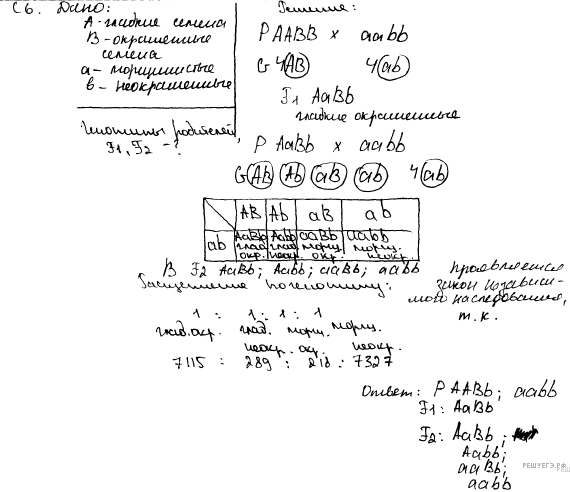 С6. Дано:
А - гладкие семена
В - окрашенные
семена
а - морщинистые
в - неокрашенные
Генотипы родителей,
F1, F2 - ?
Решение:
P AABB × aabb
G 4(AB) 4(ab)
F1 AaBb
гладкие окрашенные
P AaBb × aabb
G (AB) (Ab) (aB) (ab) 4(ab)
AB Ab aB ab
ab AaBb Aabb aaBb aabb
глад. глад. морщ. морщ.
окр. неокр. окр. неокр.
В F2 AaBb; Aabb; aaBb; aabb
Расщепление по генотипу:
1 : 1 : 1 : 1
глад. окр. глад. морщ. морщ.
неокр. окр. неокр.
7115 : 289 : 218 : 7327
Проявляется
закон независи-
мого наследования,
т.к.
Ответ: P AABb; aabb
F1: AaBb
F2: AaBb ;
Aabb;
aaBb;
aabb
РЕШУЕГЭ.РФ